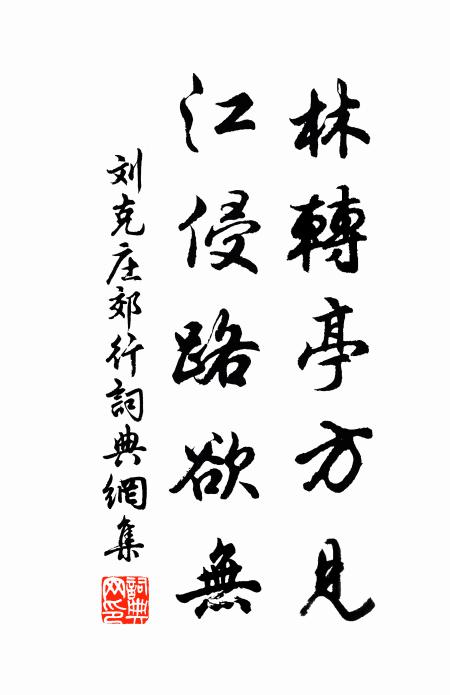 林轉亭方見
江侵路欲無
刘克庄郊行詞典網集
詞典網印